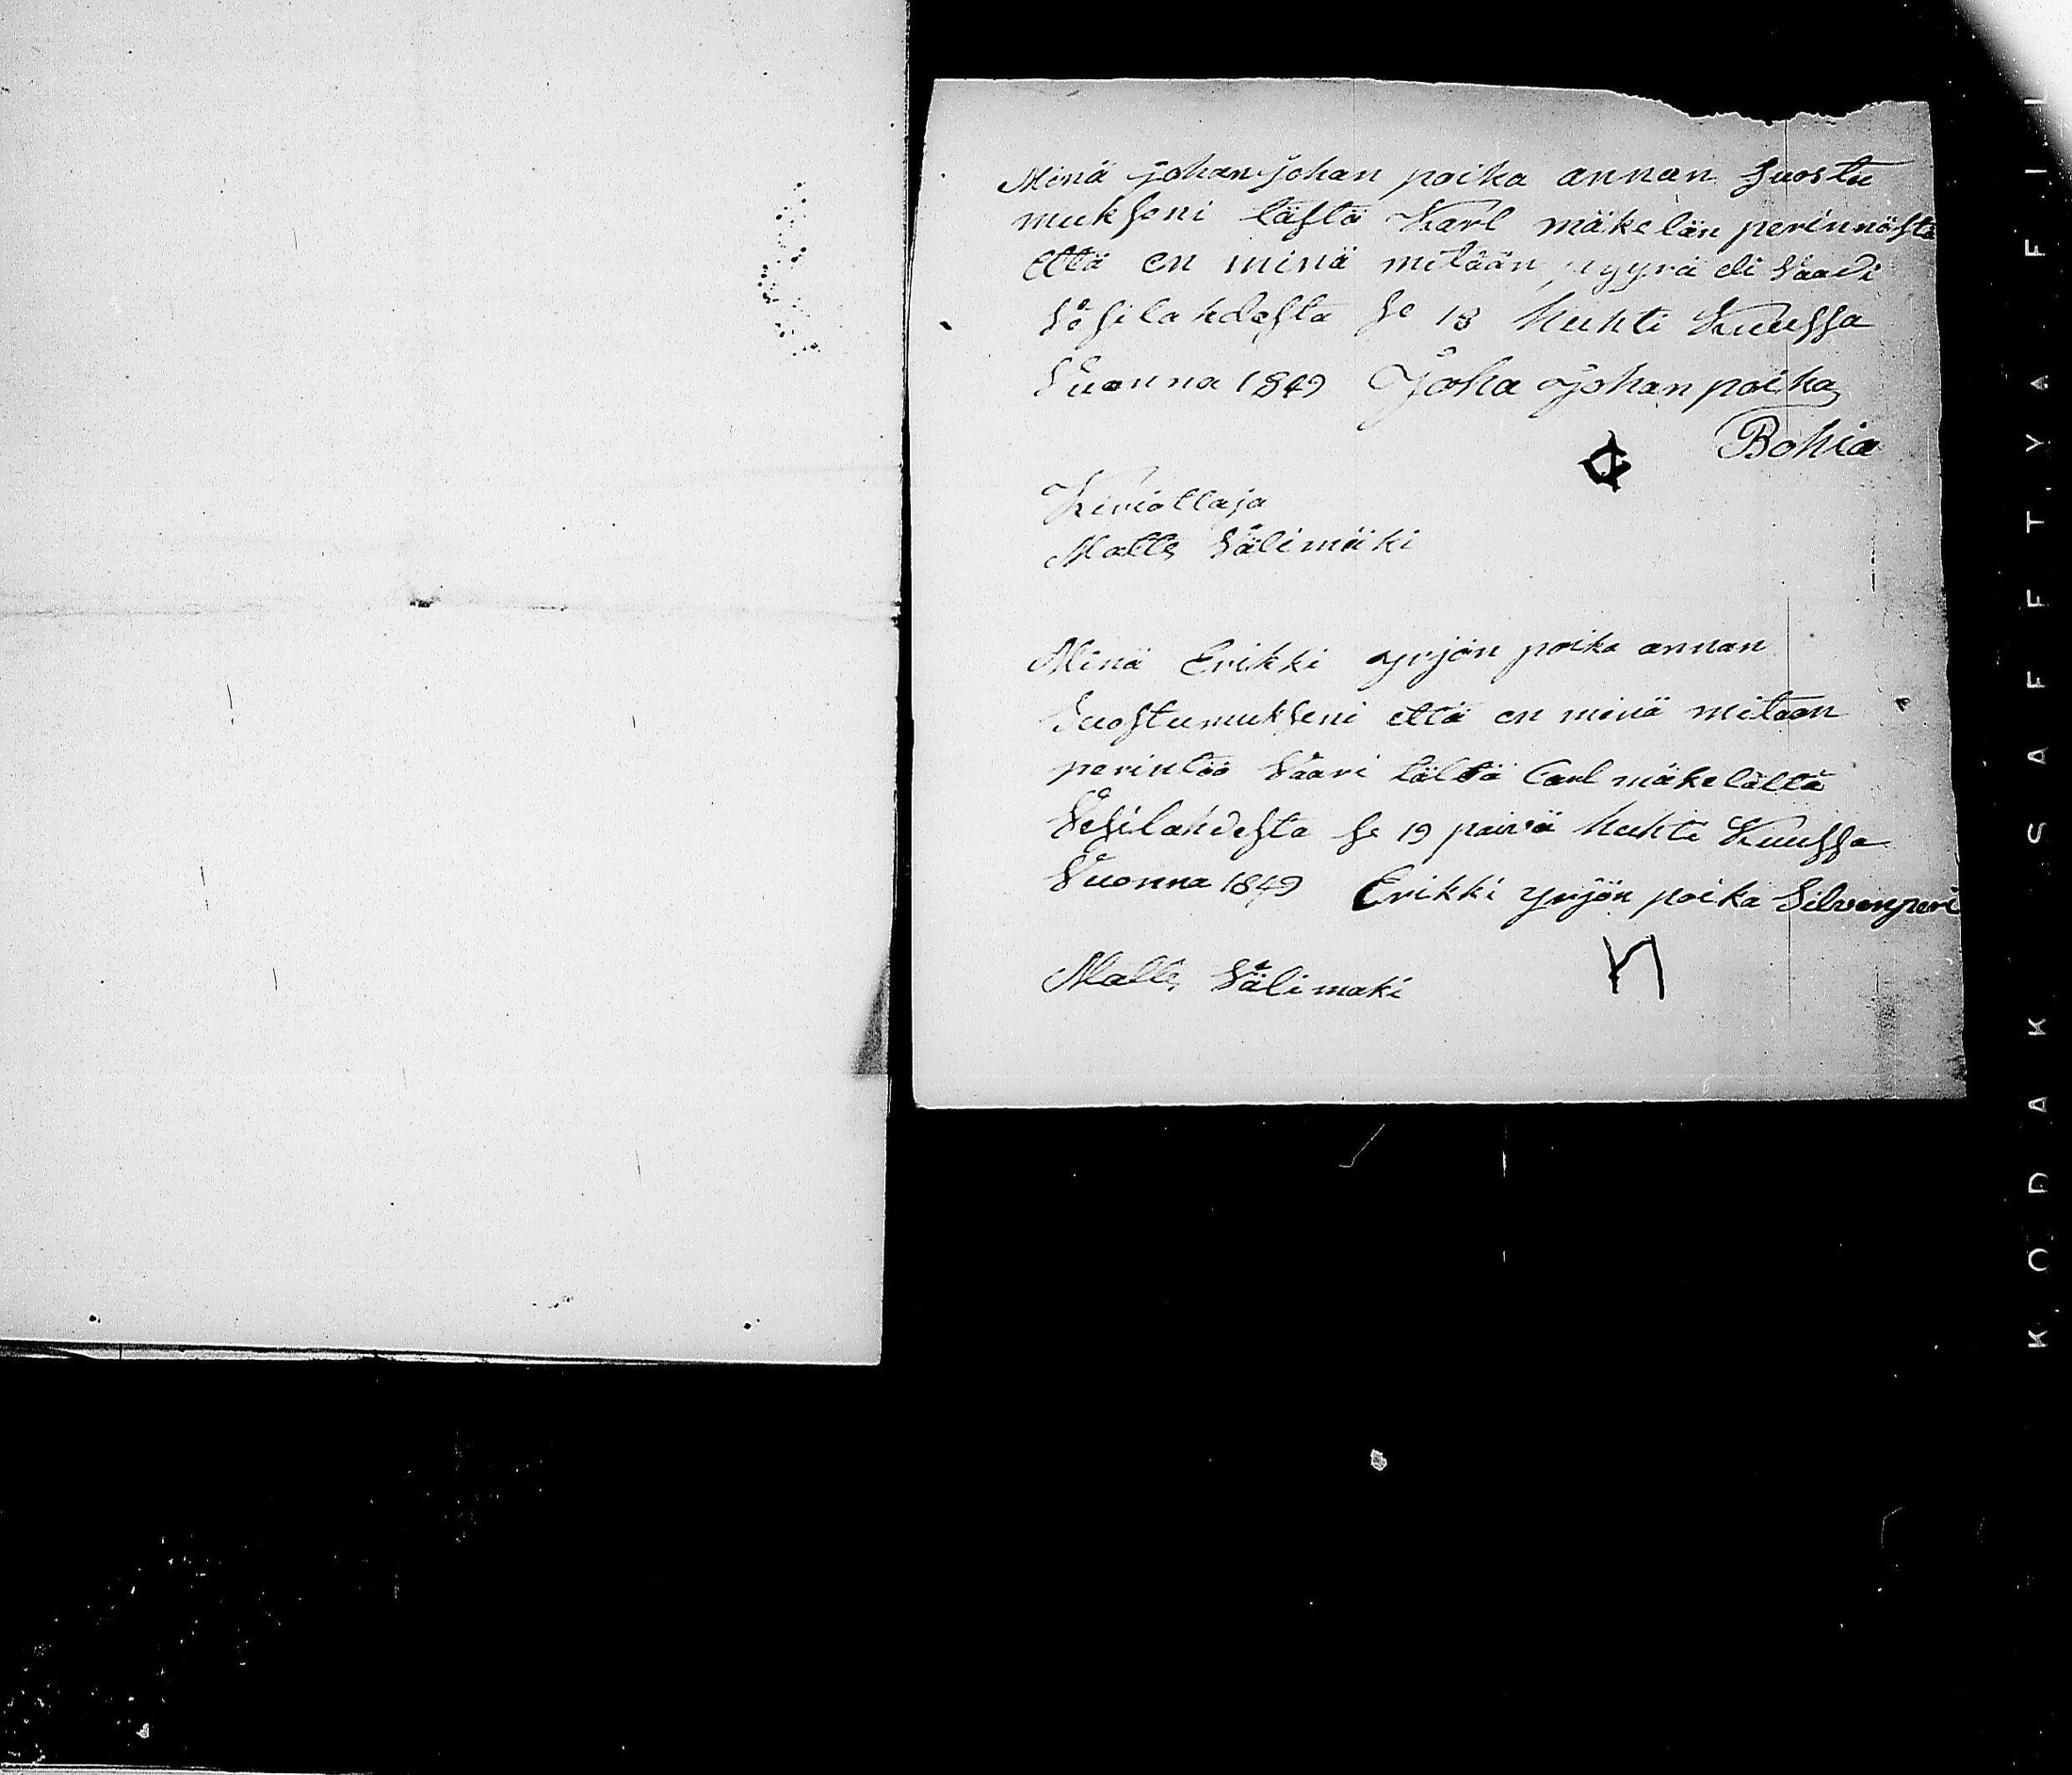 Minä johan johan poika annan Suostu
mukseni tästä Karl mäkelän perinnöstä
Että en minä mitään pyyrä eli Vaadi
Vesilahdesta Se 18 Huhti Kuussa
Vuonna 1849 Joha Johan poika
Bohia
Kiriottaja
Matts Välimäki
Minä Erikki yrjön poika annan
Suostumukseni että en minä mitaan
perintöö Vaari tältä Carl mäkelältä
Vesilahdesta Se 19 paivä huhti Kuussa
Vuonna 1849 Erikki yrjön poika Silvenperi
Matts Välimaki
KODAK SAFETY A FIL